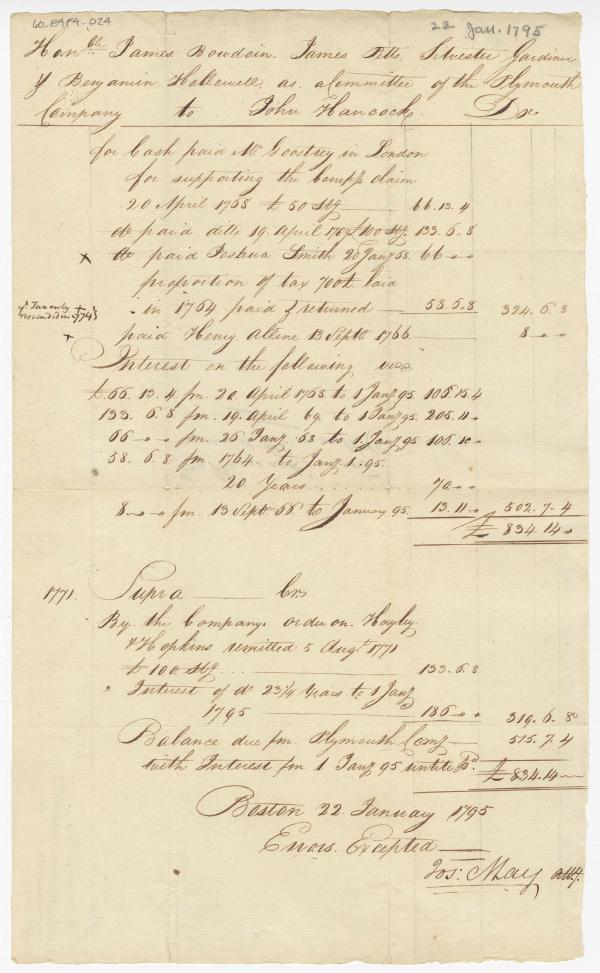 60-PAPA-024
22 Jan. 1795
Honble. James Bowdoin James Pitts, Silvester Gardiner
& Benjamin Hallowell, as a Committee of the Plymouth
Company to John Hancock Dr
for Cash paid Mr Goostrey in London
for supporting the Compys claim
20 April 1768 £50 Stg 66.13.4
do paid ditto 19 April 1769 £100 Stg 133.6.8
x do paid Joshua Smith 26 Jany 68. 66 " "
proportion of tax 700£ laid
in 1764 paid & returned 58.6.8 324.6.8
ye Tax only
rescinded in 1774
x paid Henry Alline 13 Septr 1766 8 " "
Interest on the following vizt
£66.13.4 fm. 20 April 1768 to 1 Janry 95. 106.15.4
133.6.8 fm. 19. April 69. to 1 Janry 95 205.11 "
66 " " fm. 26 Janry. 68 to 1. Janry 95 106.10 "
58.6.8 fm 1764 to Janry 1. 95.
20 Years 70 " "
8 " " fm. 13 Septr 66 to January 95. 13.11 " 502.7.4
£ 834.14 "
1771. Supra Crs
By the Companys order on. Hayley
& Hopkins remitted 5 Augt 1771
£100 Stg 133.6.8
Interest of do 23 1/4 Years to 1 Janry
1795 186 " " 319.6.8
Balance due fm. Plymouth Compy 515.7.4
with Interest fm 1 Janry 95 untill Pd. £ 834.14
Boston 22 January 1795
Errors Excepted
Jos: May atty.